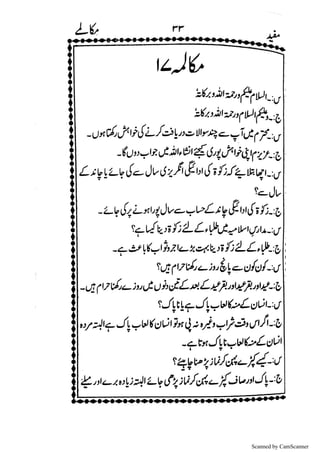 مفید
۳۳
مکالمے
مکالمہ ۱۷
س:۔ السلام علیکم ورحمۃ اللہ وبرکاتہٗ
ج:۔ وعلیکم السلام ورحمۃ اللہ وبرکاتہٗ
س:۔ محترم میں آپ سے چند سوالات دریافت کرنے کی خواہش رکھتا ہوں۔
ج:۔ عزیزم اپنی خواہش پوری کیجئے انشاء اللہ میں جواب دوں گا۔
س:۔ اچھا بتلایئے کہ زکوٰۃ کی ادائیگی انگریزی سال سے کی جائے یا چاند کے
سال سے؟
ج:۔ زکوٰۃ کی ادائیگی چاند کے حساب سے سال پورا ہونے پر کی جائے۔
س:۔ مدارس اسلامیہ میں طلباء کے لئے زکوٰۃ دینا کیسا ہے؟
ج:۔ طلباء کے لئے زکوٰۃ دینا بہت بڑے اجر وثواب کا باعث ہے۔
س:۔ کون کون سے پانچ روزے رکھنا حرام ہیں؟
ج:۔ عید اور بقرعید اور بقرعید کے بعد کے تین دنوں میں روزے رکھنا حرام ہیں۔
س:۔ انسان کے منہ کا لعاب پاک ہے یا ناپاک؟
ج:۔ اگر اس وقت شراب وغیرہ نہ پی ہو تو انسان کا لعاب پاک ہے البتہ مردہ
انسان کے منہ کا لعاب ناپاک ہوتا ہے۔
س:۔ کیسے کپڑے پہن کر نماز پڑھنا چاہیئے؟
ج:۔ پاک اور صاف کپڑے پہن کر نماز پڑھی جائے البتہ زیادہ برے اور میلے
Scanned by CamScanner